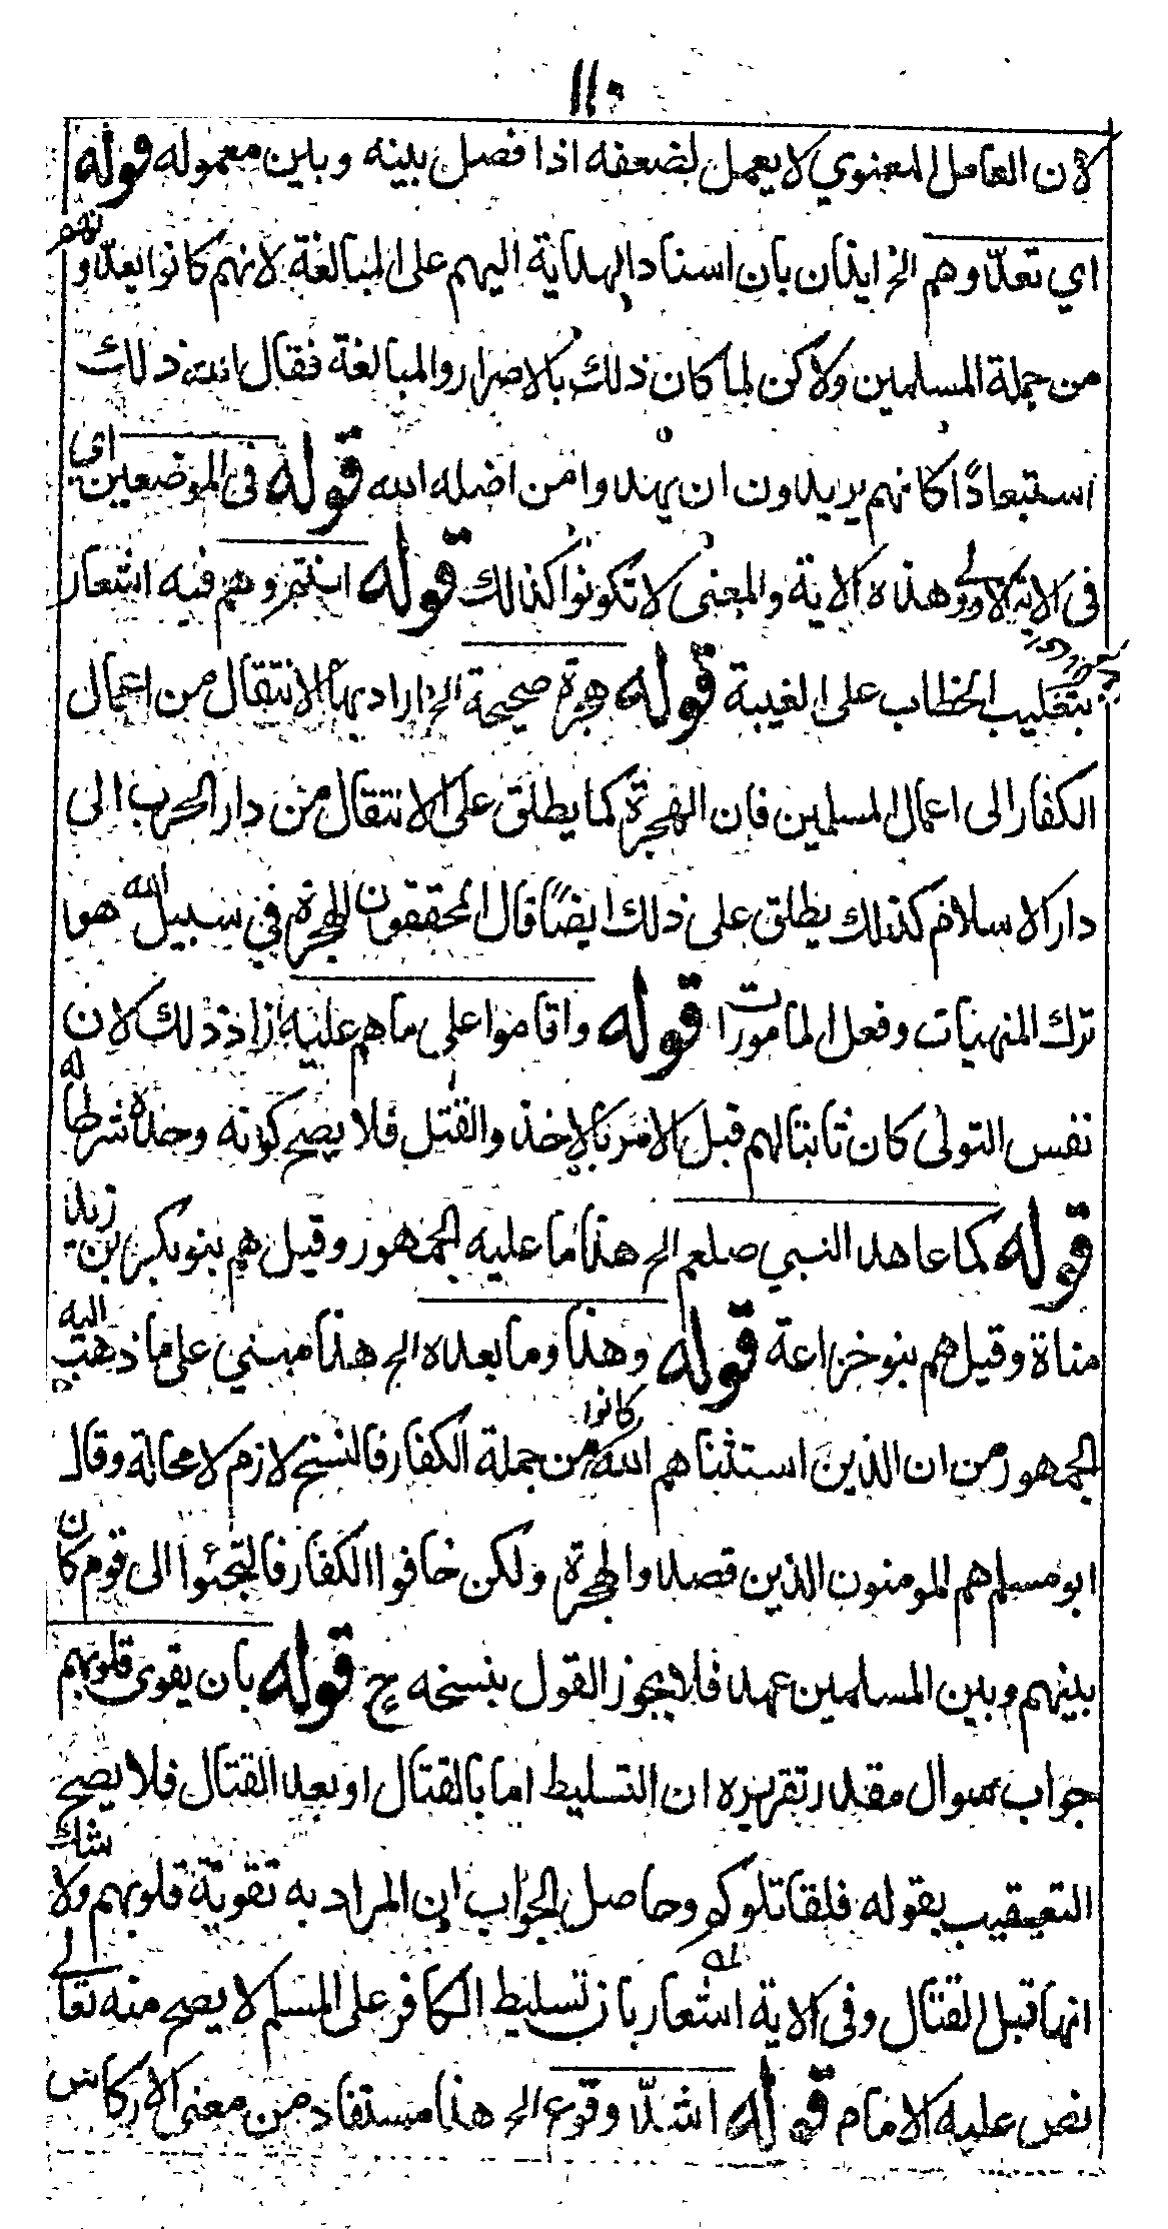 ١١٥
لان العامل المعنوي لا يعمل لضعفه اذا فصل بينه وبين معموله قوله
اي تعدّوهم الخ ايذان بان اسناد الهداية اليهم على المبالغة لانهم كانوا يعدّونهم
من جملة المسلمين ولاكن لما كان ذلك بالاصرار والمبالغة فقال الله ذلك
استبعادًا كانهم يريدون ان يهدوا من اضله الله قوله في الموضعين اي
فى الاية الاولى وهذه الاية والمعنى لا تكونوا كذالك قوله انتم وهم فيه اشعار
بتغليب الخطاب على الغيبة قوله هجرة صحيحة الخ اراد بها الانتقال من اعمال
الكفار الى اعمال المسلمين فان الهجرة كما يطلق على الانتقال من دار الحرب الى
دار الاسلام كذلك يطلق على ذلك ايضًا قال المحققون الهجرة في سبيل الله هو
ترك المنهيات وفعل المامورات قوله واقاموا على ما هم عليه زاد ذلك لان
نفس التولى كان ثابتا لهم قبل الامر بالاخذ والقتل فلا يصح كونه وحده شرطا له
قوله كما عاهد النبي صلعم الخ هذا ما عليه الجمهور وقيل هم بنو بكر بن زيد
مناة وقيل هم بنو خزاعة قوله وهذا وما بعده الخ هذا مبني على ما ذهب اليه
الجمهور من ان الذين استثناهم الله كانوا من جملة الكفار فالنسخ لازم لا محالة وقال
ابو مسلم هم المومنون الذين قصدوا الهجرة ولكن خافوا الكفار فالتجئوا الى قوم كان
بينهم وبين المسلمين عهد فلا يجوز القول بنسخه ح قوله بان يقوى قلوبهم
جواب سوال مقدر تقريره ان التسليط اما بالقتال او بعد القتال فلا يصح
التعقيب بقوله فلقاتلوكم وحاصل الجواب ان المراد به تقوية قلوبهم ولا شك
انها قبل القتال وفى الاية اشعار بان تسليط الكافر على المسلم لا يصح منه تعالى
نص عليه الامام قوله اشدّ وقوع الخ هذا مستفاد من معنى الاركاس